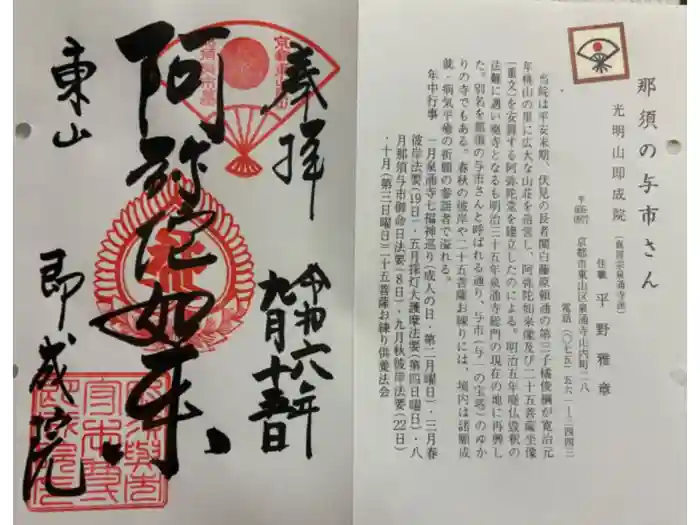 奉拝
令和六年
九月十五日
阿弥陀如来
東山
即成院
那須の与市さん
光明山即成院
(真言宗泉涌寺派)
住職 平野雅章
京都市東山区泉涌寺山内町二八
電話(〇七五)五六一—三四四三
当院は平安末期、伏見の長者関白藤原頼通の第三子橘俊綱が寛治元
年桃山の里に広大な山荘を造営し、阿弥陀如来像及び二十五菩薩坐像
(重文)を安置する阿弥陀堂を建立したのによる。明治五年廃仏毀釈の
法難に遇い廃寺となるも明治三十五年泉涌寺総門の現在の地に再興し
た。別名を那須の与市さんと呼ばれる通り、与市(与一の宝塔)のゆか
りの寺でもある。春秋の彼岸や二十五菩薩お練りには、境内は諸願成
就・病気平癒の祈願の参詣者で溢れる。
年中行事 一月泉涌寺七福神巡り(成人の日・第二月曜日)・三月春
彼岸法要(19日)・五月採灯大護摩法要(第四日曜日)・八
月那須与市御命日法要(8日)・九月秋彼岸法要(22日)
・十月(第三日曜日)二十五菩薩お練り供養法会